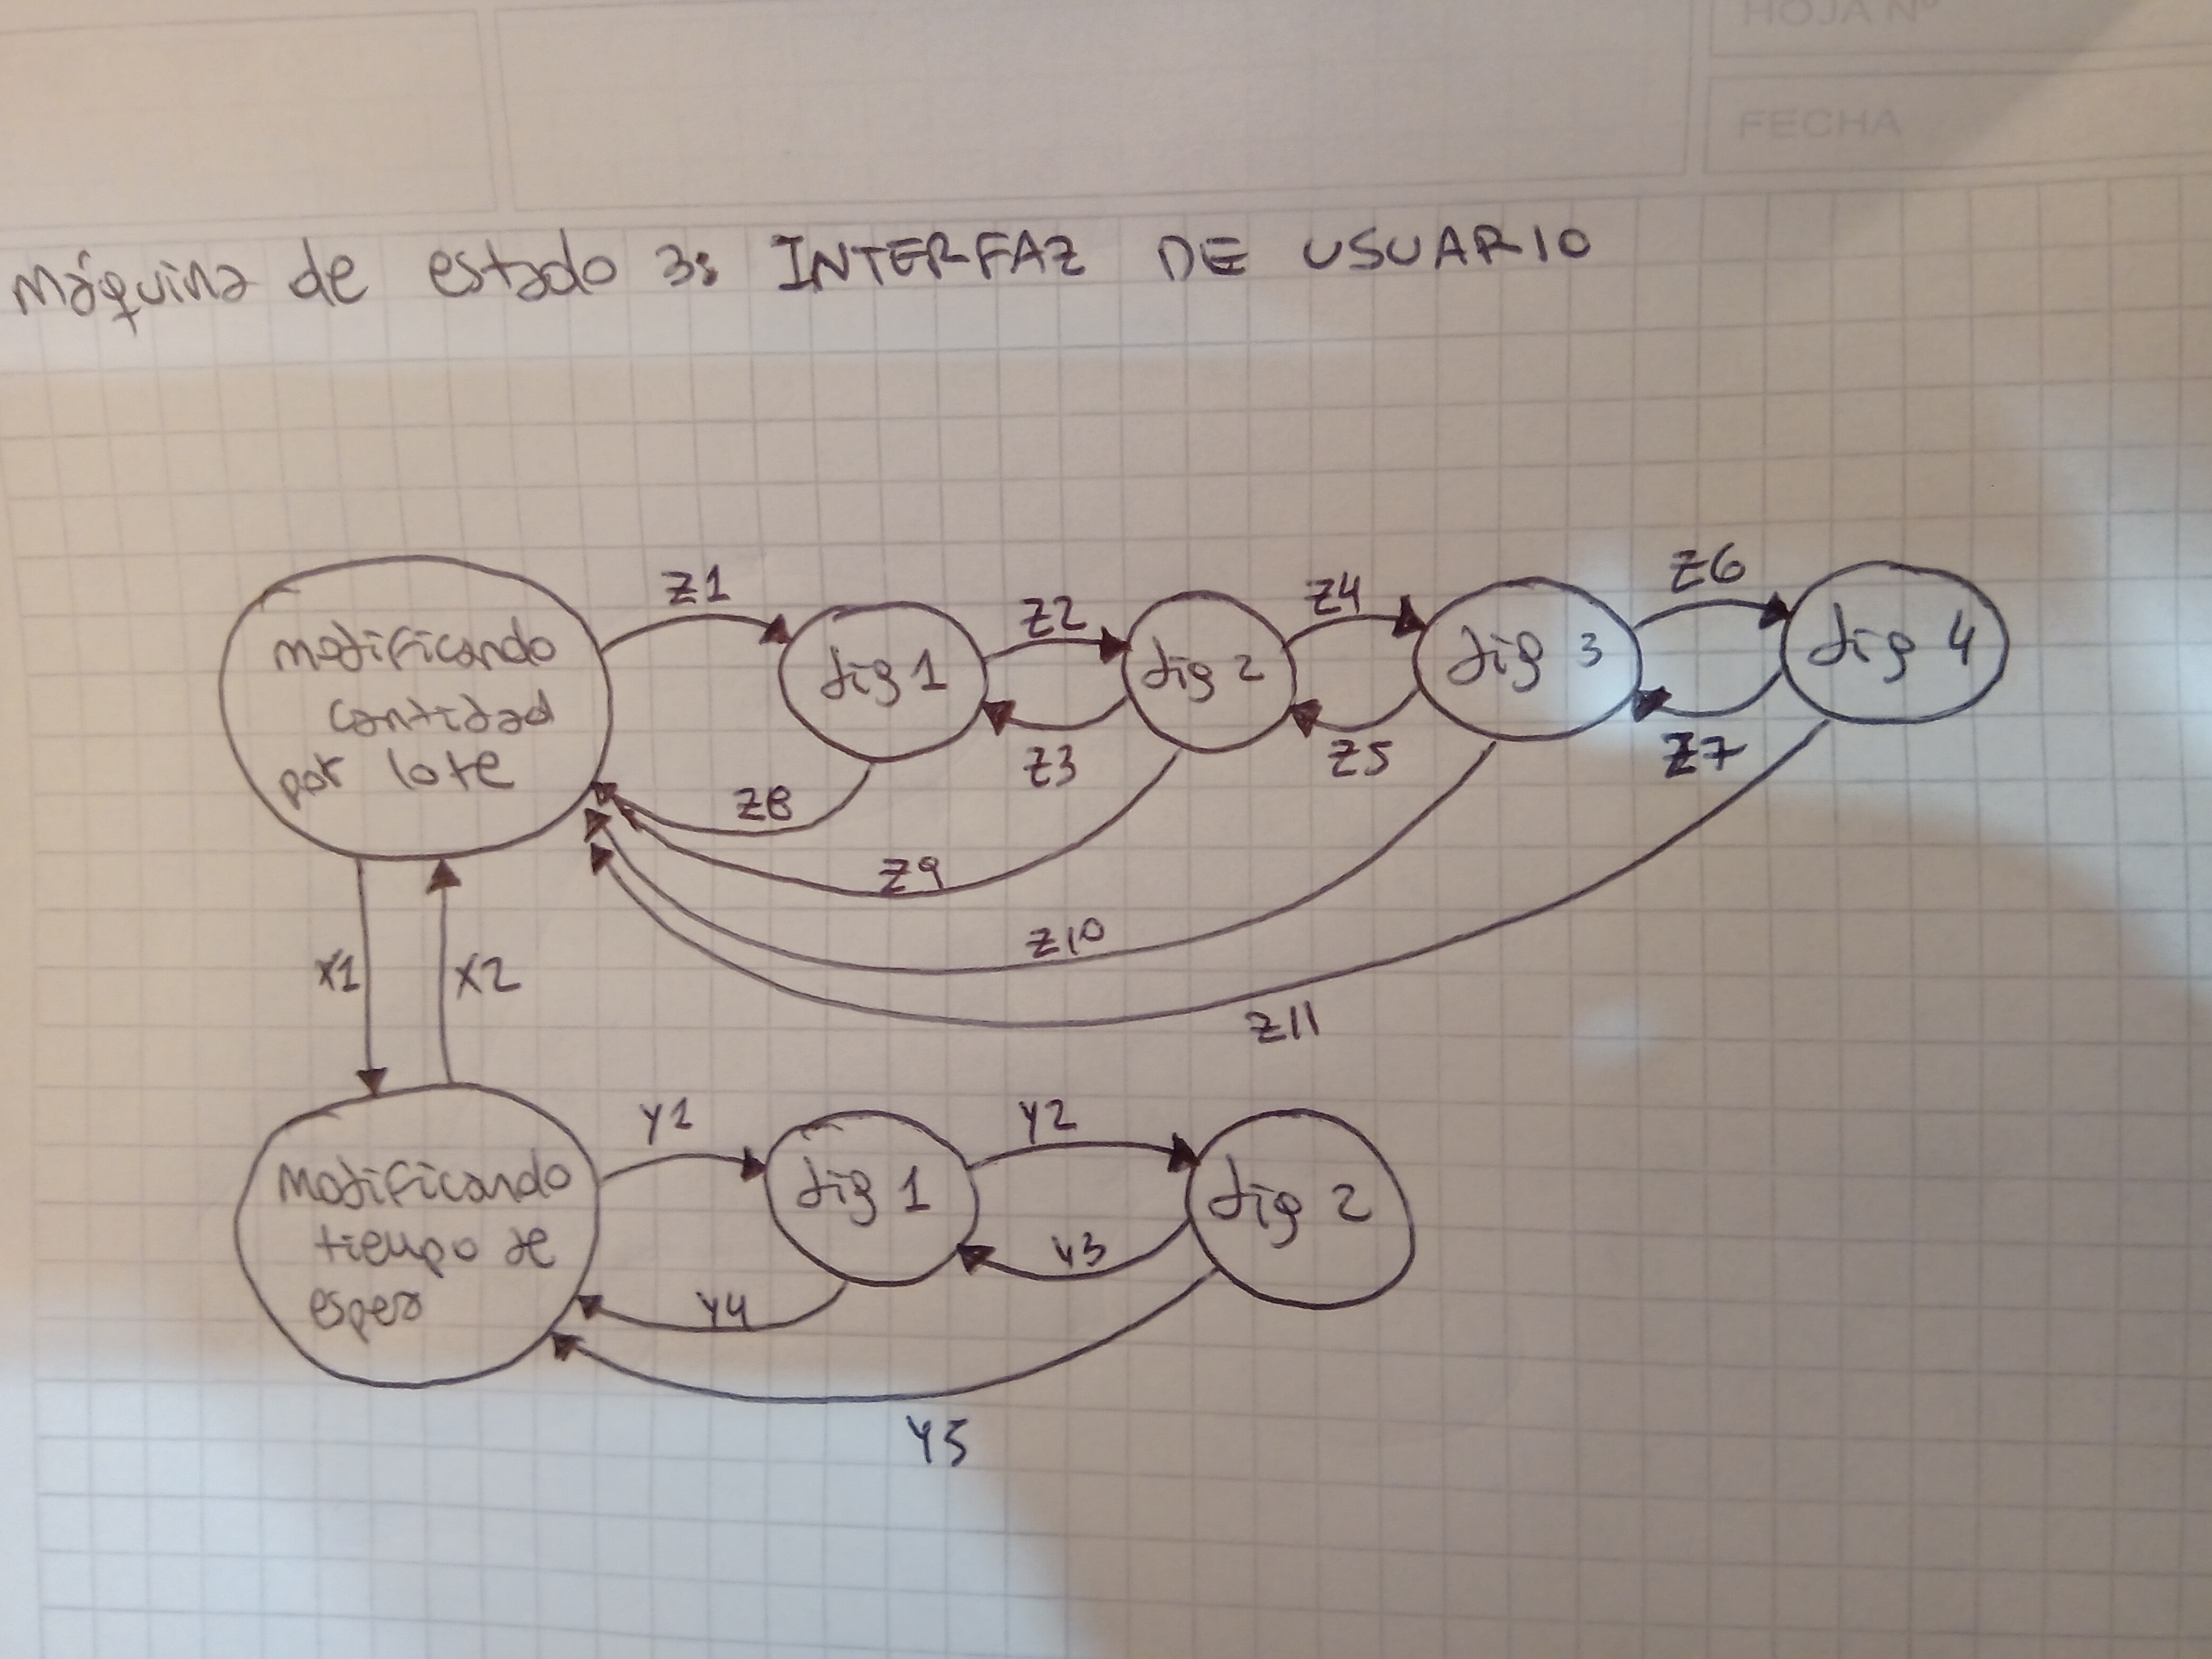 HOJA Nº
FECHA
Máquina de estado 3: INTERFAZ DE USUARIO
Z1
Z2
Z4
Z6
modificando
cantidad
por lote
dig 1
dig 2
dig 3
dig 4
Z8
Z3
Z5
Z7
Z9
Z10
X1
X2
Z11
Y1
Y2
Modificando
tiempo de
espera
dig 1
dig 2
Y3
Y4
Y5